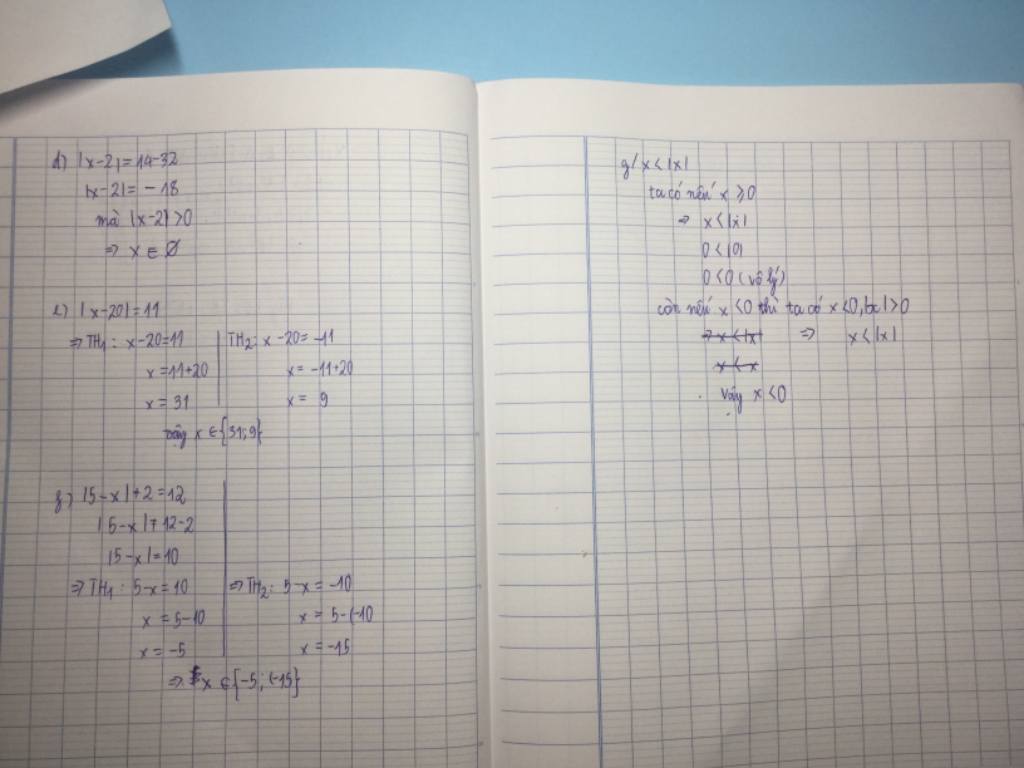 d) |x-2| = 14-32
|x-2| = -18
mà |x-2| > 0
⇒ x ∈ Ø
e) |x-20| = 11
⇒ TH1: x-20=11
x = 11+20
x = 31
TH2: x-20 = -11
x = -11+20
x = 9
vậy x ∈ {31; 9}
f) |5-x| + 2 = 12
|5-x| = 12-2
|5-x| = 10
⇒ TH1: 5-x = 10
x = 5-10
x = -5
⇒ TH2: 5-x = -10
x = 5-(-10
x = -15
⇒ x ∈ {-5; (-15}
g/ x < |x|
ta có nếu x ≥ 0
⇒ x < |x|
0 < |0|
0 < 0 (vô lý)
còn nếu x < 0 thì ta có x < 0, |x| > 0
⇒ x < |x| ⇒ x < |x|
x < x
vậy x < 0